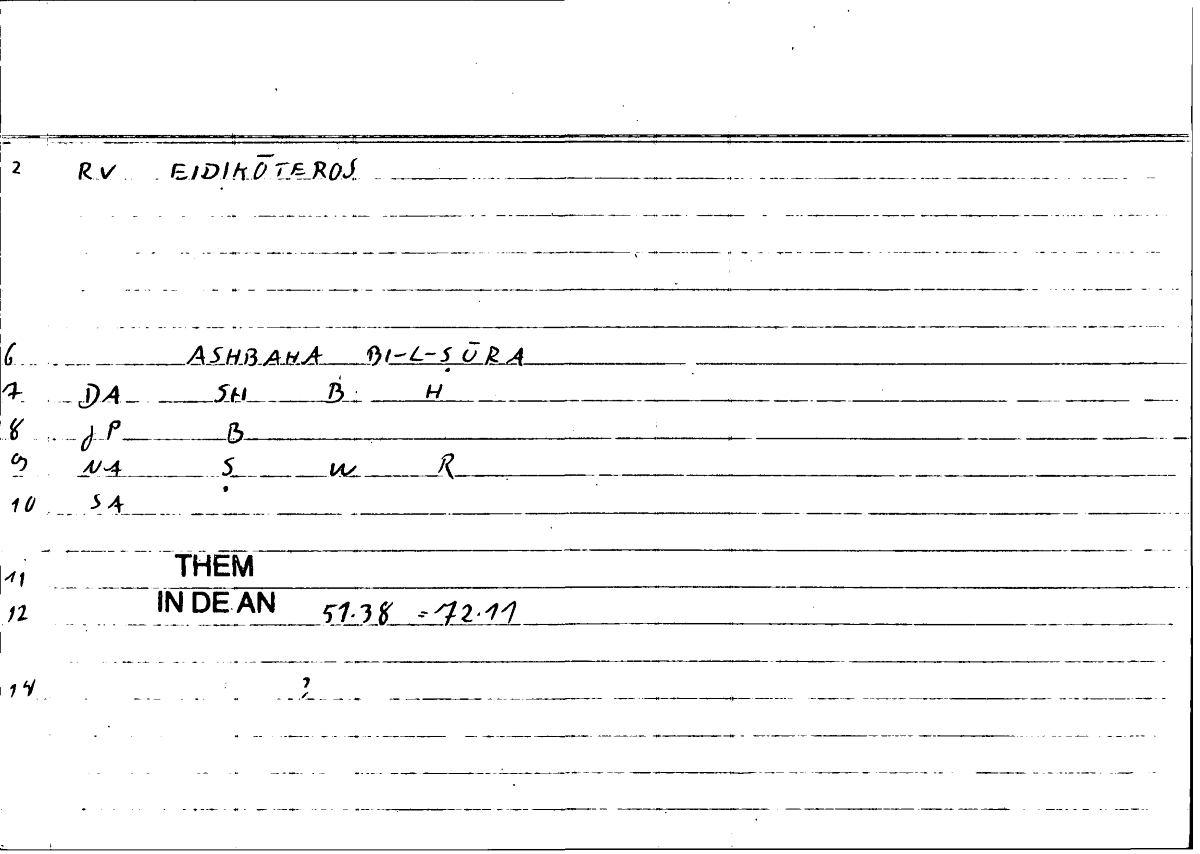 2 RV EIDIKŌTEROS
6 ASHBAHA BI-L-ṢŪRA
7 DA SH B H
8 JP B
9 NA Ṣ W R
10 SA
11 THEM
12 IN DE AN 51.38 = 72.11
14 ?